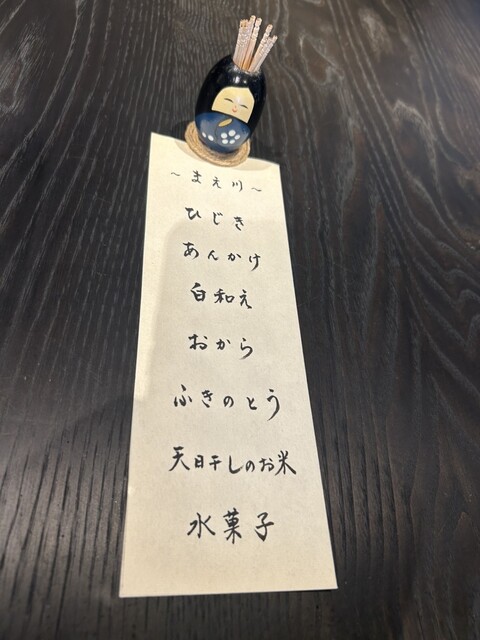 ～まえ川～
ひじき
あんかけ
白和え
おから
ふきのとう
天日干しのお米
水菓子